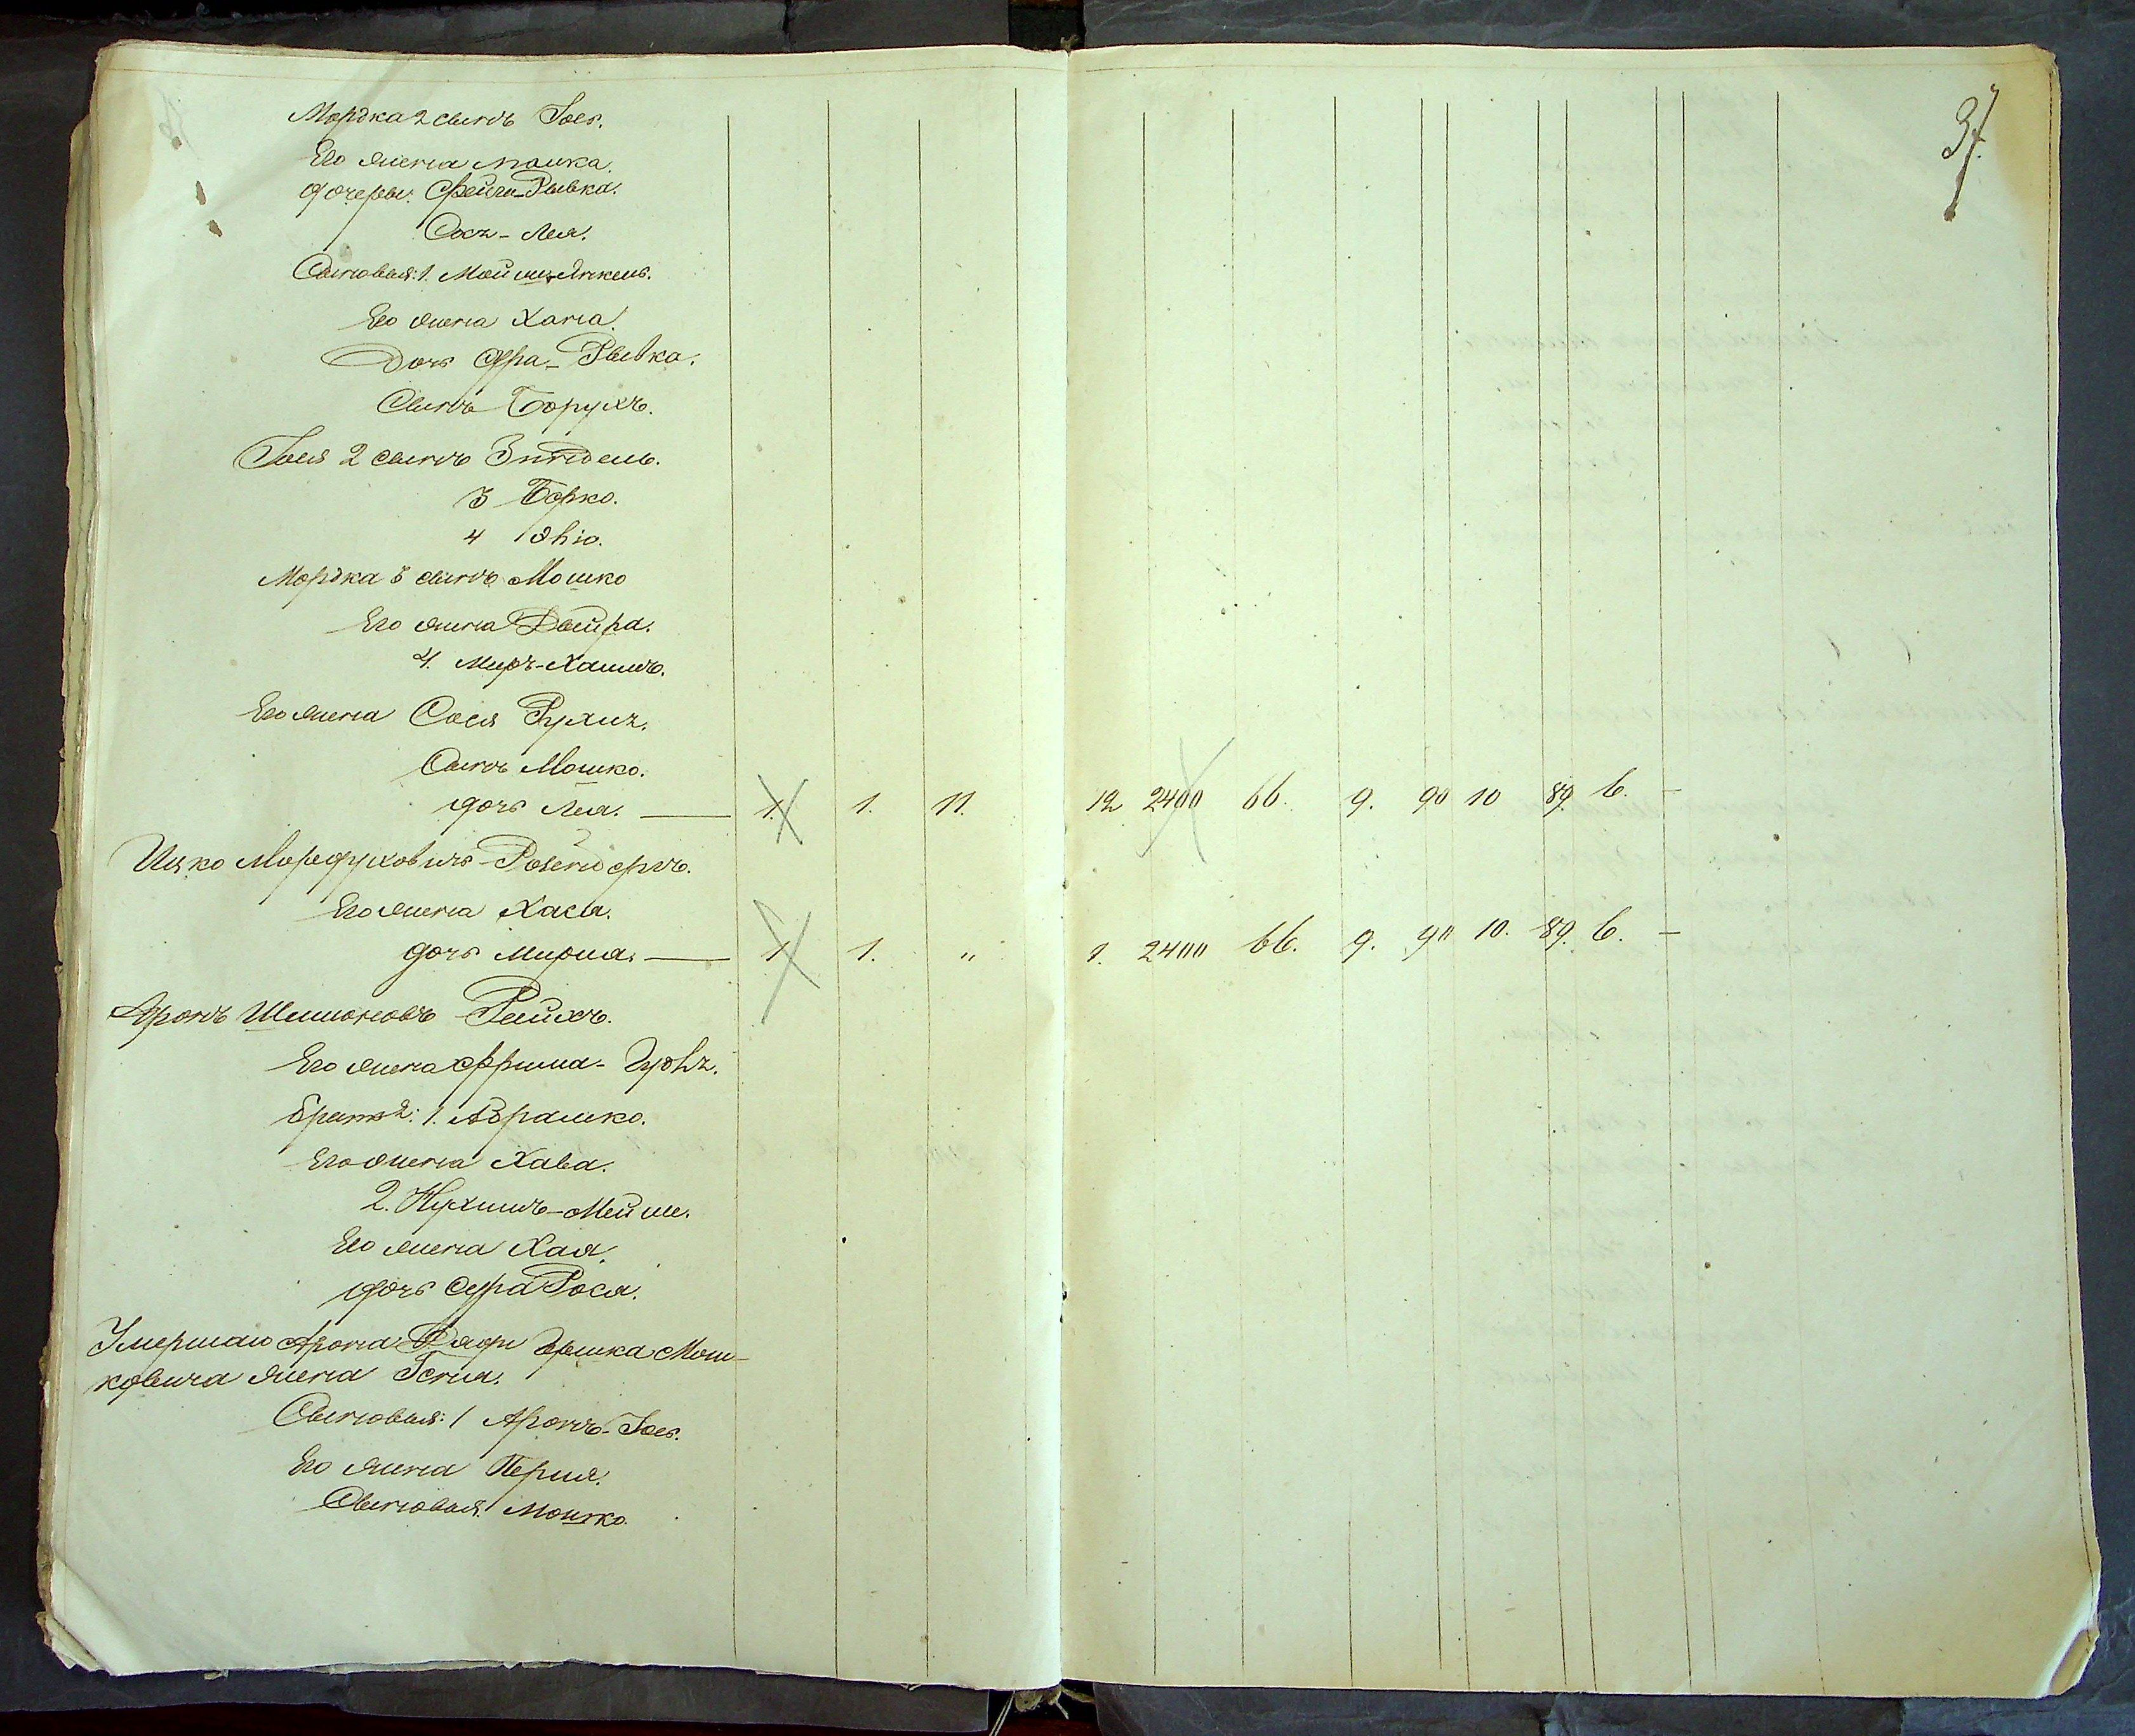 37.
Мордка 2 сынъ Іось.
Его жена
дочери: Фейга-Рывка.
Лея.
Сыновья: 1. Янкель.
Его жена Хана.
Дочь Сура-Рывка.
Сынъ Борухъ.
Іося 2 сынъ Зиндель.
3 Борко.
4
Мордка 3 сынъ Мошко
Его жена Двойра.
4. Меръ-Хаимъ.
Его жена Сося
Сынъ Мошко.
дочь Лея. — 1. 1. 11. 12 2400 66. 9. 90 10 89. 6. –
Ицко Мордуховичъ
Его жена Хася.
дочь — 1 1. " 1. 2400 66. 9. 90 10. 89. 6. –
Аронъ Шимоновъ Рейхъ.
Его жена
Брат 2: 1. Абрамко.
Его жена Хава.
2. Нухимъ-Мейше.
Его жена Хая.
дочь Сура Рося.
Умершаго Арона Мош-
ковича жена Геня.
Сыновья: 1 Аронъ-Іось.
Его жена Перля.
Сыновья: Мошко.